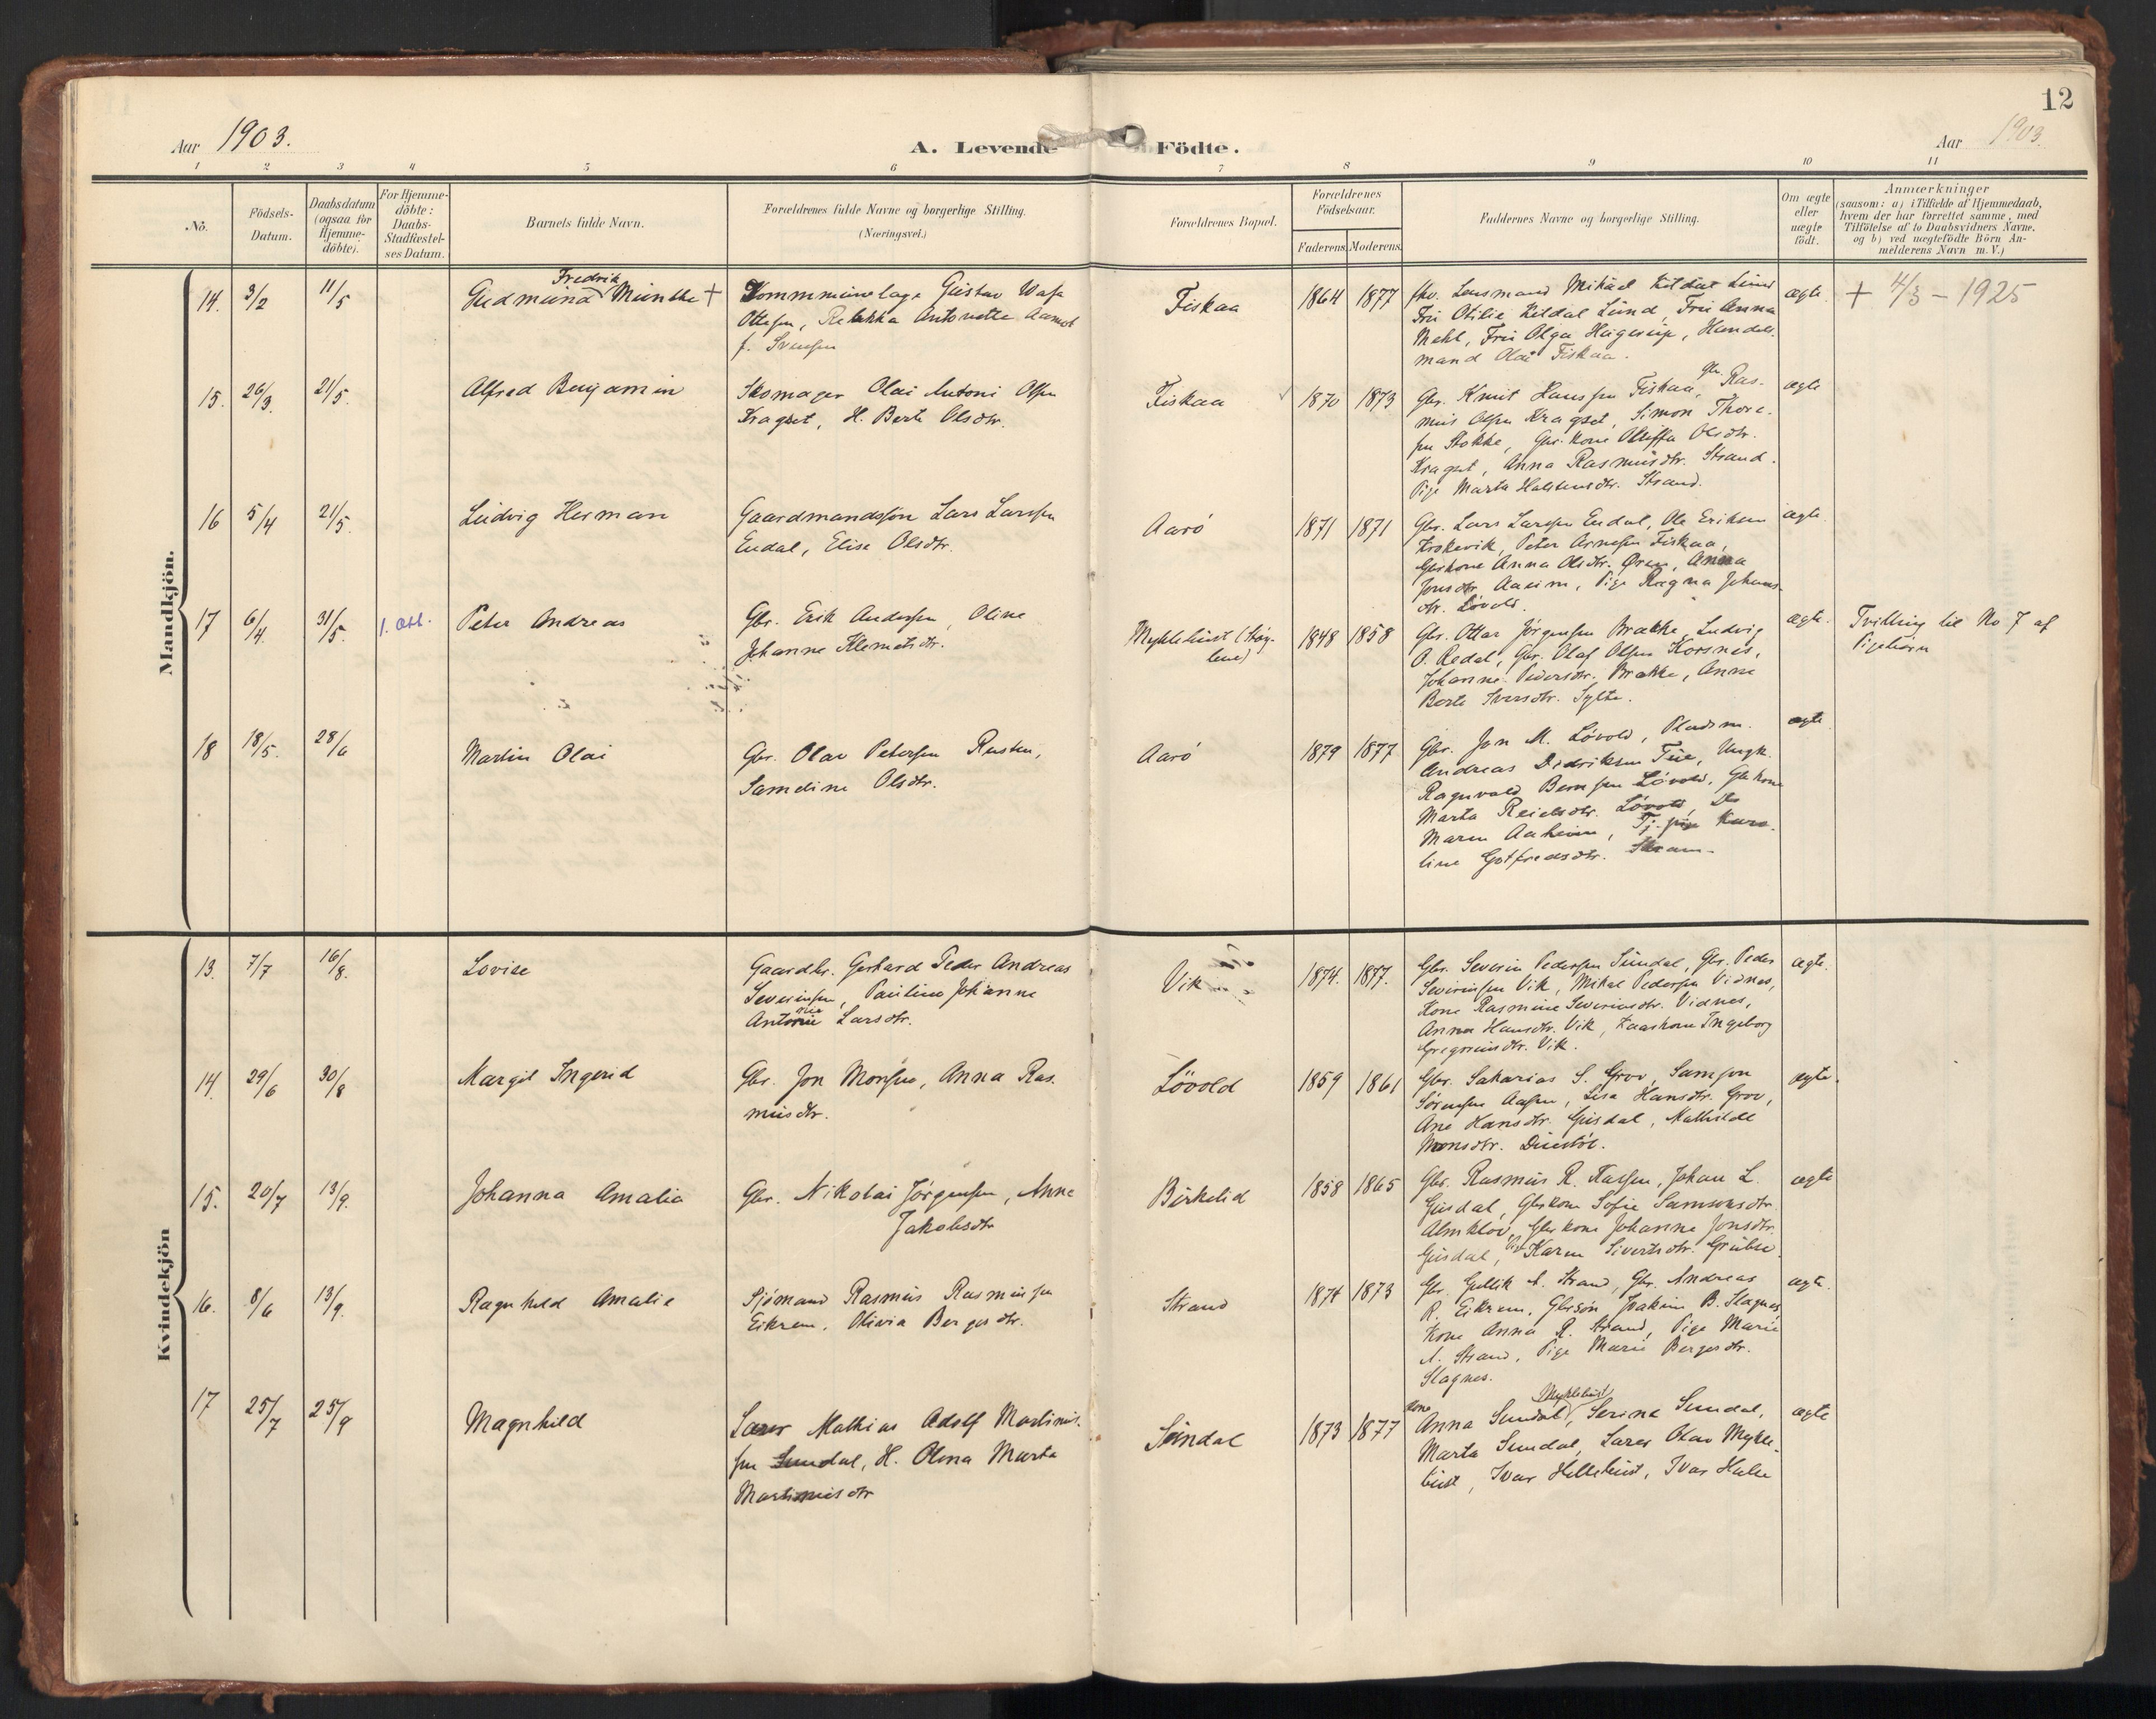 12
Aar 1903.
A. Levende Födte.
Aar 1903.
1 2 3 4 5 6 7 8 9 10 11
No.
Födsels-
Datum.
Daabsdatum
(ogsaa for
Hjemme-
döbte).
For Hjemme-
döbte:
Daabs-
Stadfæstel-
ses Datum.
Barnets fulde Navn.
Forældrenes fulde Navne og borgerlige Stilling.
(Næringsvei.)
Forældrenes Bopæl.
Forældrenes
Födselsaar.
Faderens. Moderens.
Faddernes Navne og borgerlige Stilling.
Om ægte
eller
uægte
födt.
Anmærkninger
(saasom: a) i Tilfælde af Hjemmedaab,
hvem der har forrettet samme, med
Tilföielse af to Daabsvidners Navne,
og b) ved uægtefödte Börn An-
melderens Navn m. V.)
Mandkjön.
14. 3/2 11/5
Fredrik
Gudmund Munthe +
Kommunelæge Gustav Wasa
Ottesen, Rebekka Antonette Aamot
f. Svensen
Fiskaa
1864 1877
fhv. Lensmand Mikael Kildal Lund
Fru Otilie Kildal Lund, Fru Anna
Mehl, Fru Olga Hagerup, Handels-
mand Olai Fiskaa.
ægte.
+ 4/3 - 1925
15. 26/3. 21/5.
Alfred Benjamin
Skomager Olai Antoni Olsen
Kragset, H. Berte Olsdtr.
Fiskaa
1870 1873
Gbr. Knut Hansen Fiskaa, Gbr. Ras-
mus Olsen Kragset, Simon Thore-
sen Stokke, Gbr. Kone Oliffa Olsdtr.
Kragset, Anna Rasmusdtr. Strand.
Pige Marta Halstensdtr. Strand.
ægte
16 5/4 21/5.
Ludvig Herman
Gaardmandssøn Lars Larssen
Endal, Elise Olsdtr.
Aarö
1871 1871
Gbr. Lars Larssen Endal, Ole Eriksen
Krokevik, Peter Arnesen Fiskaa,
Gbrkone Anna Olsdtr. Øren, Anna
Jonsdtr. Aaeim, Pige Ragna Johans-
dtr. Lövold.
ægte.
17 6/4. 31/5. 1. Okt.
Peter Andreas
Gbr. Erik Anderssen, Oline
Johanne Klemetsdtr.
Myklebust (Støy-
lene)
1848 1858
Gbr. Ottar Jörgensen Brække, Ludvig
O. Redal, Gbr. Olaf Olsen Korsnes,
Johanne Pedersdtr. Brække, Anne
Berte Iversdtr. Sylte.
ægte.
Tvilling til No 7 af
Pigebörn
18 18/5. 28/6
Martin Olai
Gbr. Olav Petersen Rusten,
Sameline Olsdtr.
Aarö
1879 1877
Gbr. Jon M. Lövold, Pladsm.
Andreas Didriksen Tue, Ungk.
Ragnvald Bernsen Lövold, Gbrkone
Marta Reielsdtr. Lövold, Do
Maren Aaheim, Tj. pige Karo-
line Gotfredsdtr.
ægte
Kvindekjön
13. 7/7 16/8.
Lovise
Gaardbr. Gerhard Peder Andreas
Severinsen, Pauline Johanne
Antonie Larsdtr.
Vik
1874. 1877.
Gbr. Severin Pedersen Sundal, Gbr. Peder
Severinsen Vik, Mikal Pedersen Vidnes,
Kone Rasmine Severinsdtr. Vidnes,
Anna Hansdtr. Vik, Kaarkone Ingeborg
Gregoriusdtr. Vik.
ægte.
14. 29/6 30/8
Margit Ingerid
Gbr. Jon Monsen, Anna Ras-
musdtr.
Lövold
1859 1861
Gbr. Sakarias S. Grov, Samson
Sørensen Aasen, Lisa Hansdtr. Grov,
Ane Hansdtr. Gusdal, Mathilde
Monsdtr.
ægte.
15. 20/7 13/9.
Johanna Amalia
Gbr. Nikolai Jörgensen, Anne
Jakobsdtr
Birkelid
1858 1865
Gbr. Rasmus R. Aassen, Johan L.
Gusdal, Gbrkone Sofie Samsonsdtr.
Almklov, Gbrkone Johanne Jonsdtr.
Gusdal, Karen Sivertsdtr.
ægte
16. 8/6 13/9.
Ragnhild Amalie
Sjömand Rasmus Rasmussen
Eikrem, Olivia Bergersdtr.
Strand
1874 1873
Gbr. Gullik A. Strand, Gbr. Andreas
R. Eikrem, Gbrsön Joakim B. Slagnes,
Kone Anna R. Strand, Pige Marie
A. Strand, Pige Marie Bergersdtr.
Slagnes.
ægte.
17 25/7 25/9
Magnhild
Lærer Mathias Adolf Martinus-
sen Sundal, H. Olena Marta
Martinusdtr
Sundal
1873 1877
Myklebust
Kone Anna Sundal, Serina Sundal,
Marta Sundal, Lærer Olav Mykle-
bust, Ivar Hellebust, Ivar
ægte